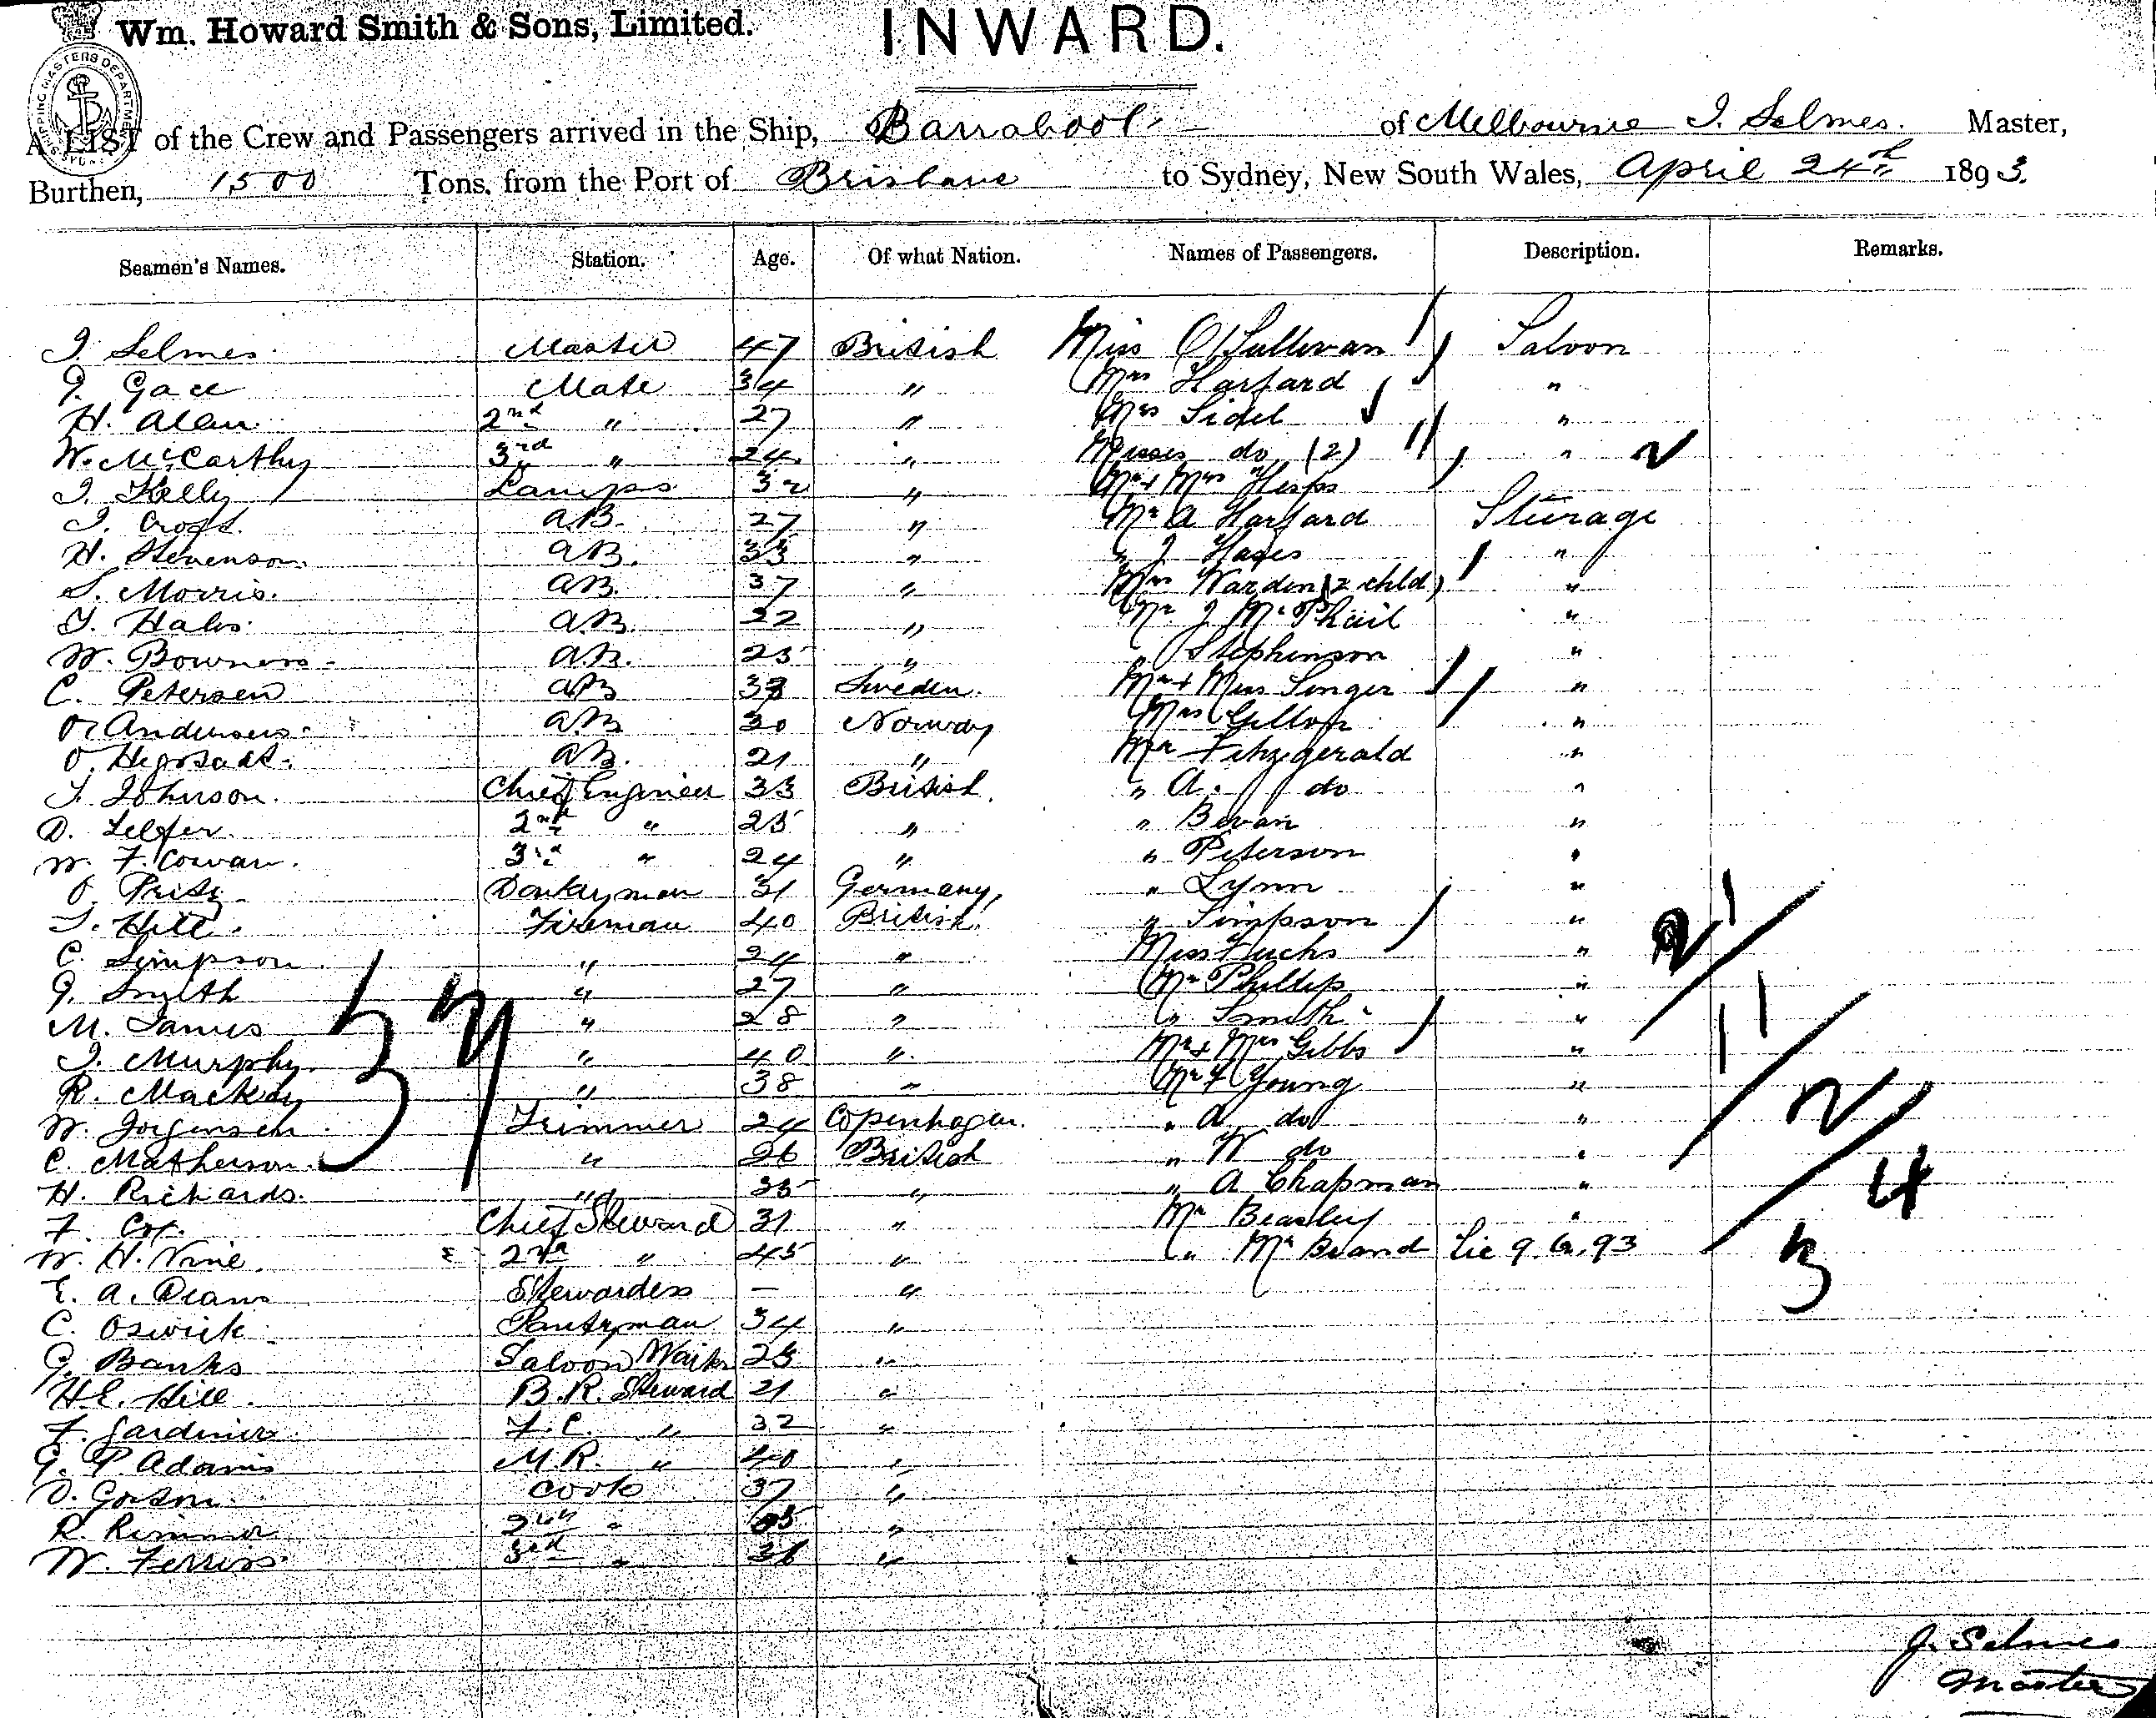 Wm. Howard Smith & Sons, Limited. INWARD.
SHIPPING MASTERS DEPARTMENT SYDNEY
A LIST of the Crew and Passengers arrived in the Ship, Barrabool of Melbourne J. Selmes. Master,
Burthen, 1500 Tons, from the Port of Brisbane to Sydney, New South Wales, April 24th 1893.
Seamen's Names. Station. Age. Of what Nation. Names of Passengers. Description. Remarks.
J. Selmes Master 47 British Miss O'Sullivan Saloon
G. Gace Mate 34 " Mrs Harfard "
H. Alan 2nd " 27 " Mrs Sidel "
W. McCarthy 3rd " 24 " Misses do (2) "
J. Kelly Lamps 32 " Mr + Mrs Hesps
J. Croft. A.B. 27 " Mr A Harfard Steerage
H. Stevenson. A.B. 33 " " J Hayes "
S. Morris. A.B. 37 " Mrs Warden (2 chld) "
A.B. 22 " Mr J McPhail "
W. Bowness A.B. 25 " " Stephinson "
C. Petersen A.B. Sweden. Mr + Miss Singer "
A.B. 30 Norway Mrs "
A.B. 21 " Mr Fitzgerald "
J. Johnson. Chief Engineer 33 British. " A. do "
D. Telfer. 2nd " 25 " " Bevan "
W. F. Cowan. 3rd " 24 " " Peterson "
Donkeyman 31 Germany, " Lynn "
T. Hill. Fireman 40 British. " Simpson "
C. Simpson " 24 " Miss Fuchs "
G. Smith " 27 " Mr Phillips "
M. James " 28 " " Smith "
J. Murphy. " 40 " Mr + Mrs Gibbs "
R. Mackay " 38 " Mr F Young "
W. Jorgensen Trimmer 24 Copenhagen. " A do "
C. Matherson " 26 British " W do "
H. Richards. " " " A Chapman "
F. Cox. Chief Steward 31 " Mr Beasley "
W. H. Vine. 2nd " 45 " " Lic 9.6.93
E. A. Deans Stewardess — "
C. Oswick Pantryman 34 "
G. Banks Saloon Waiter 23 "
H.C. Hill. B.R. Steward 21 "
F. Gardiner F.C. " 32 "
G. P. Adams M.R. " 40 "
D. Gordon. Cook 37 "
R. Rimmer 2nd " "
W. Ferriss 3rd " "
37
2
2
4
3
J. Selmes
Master